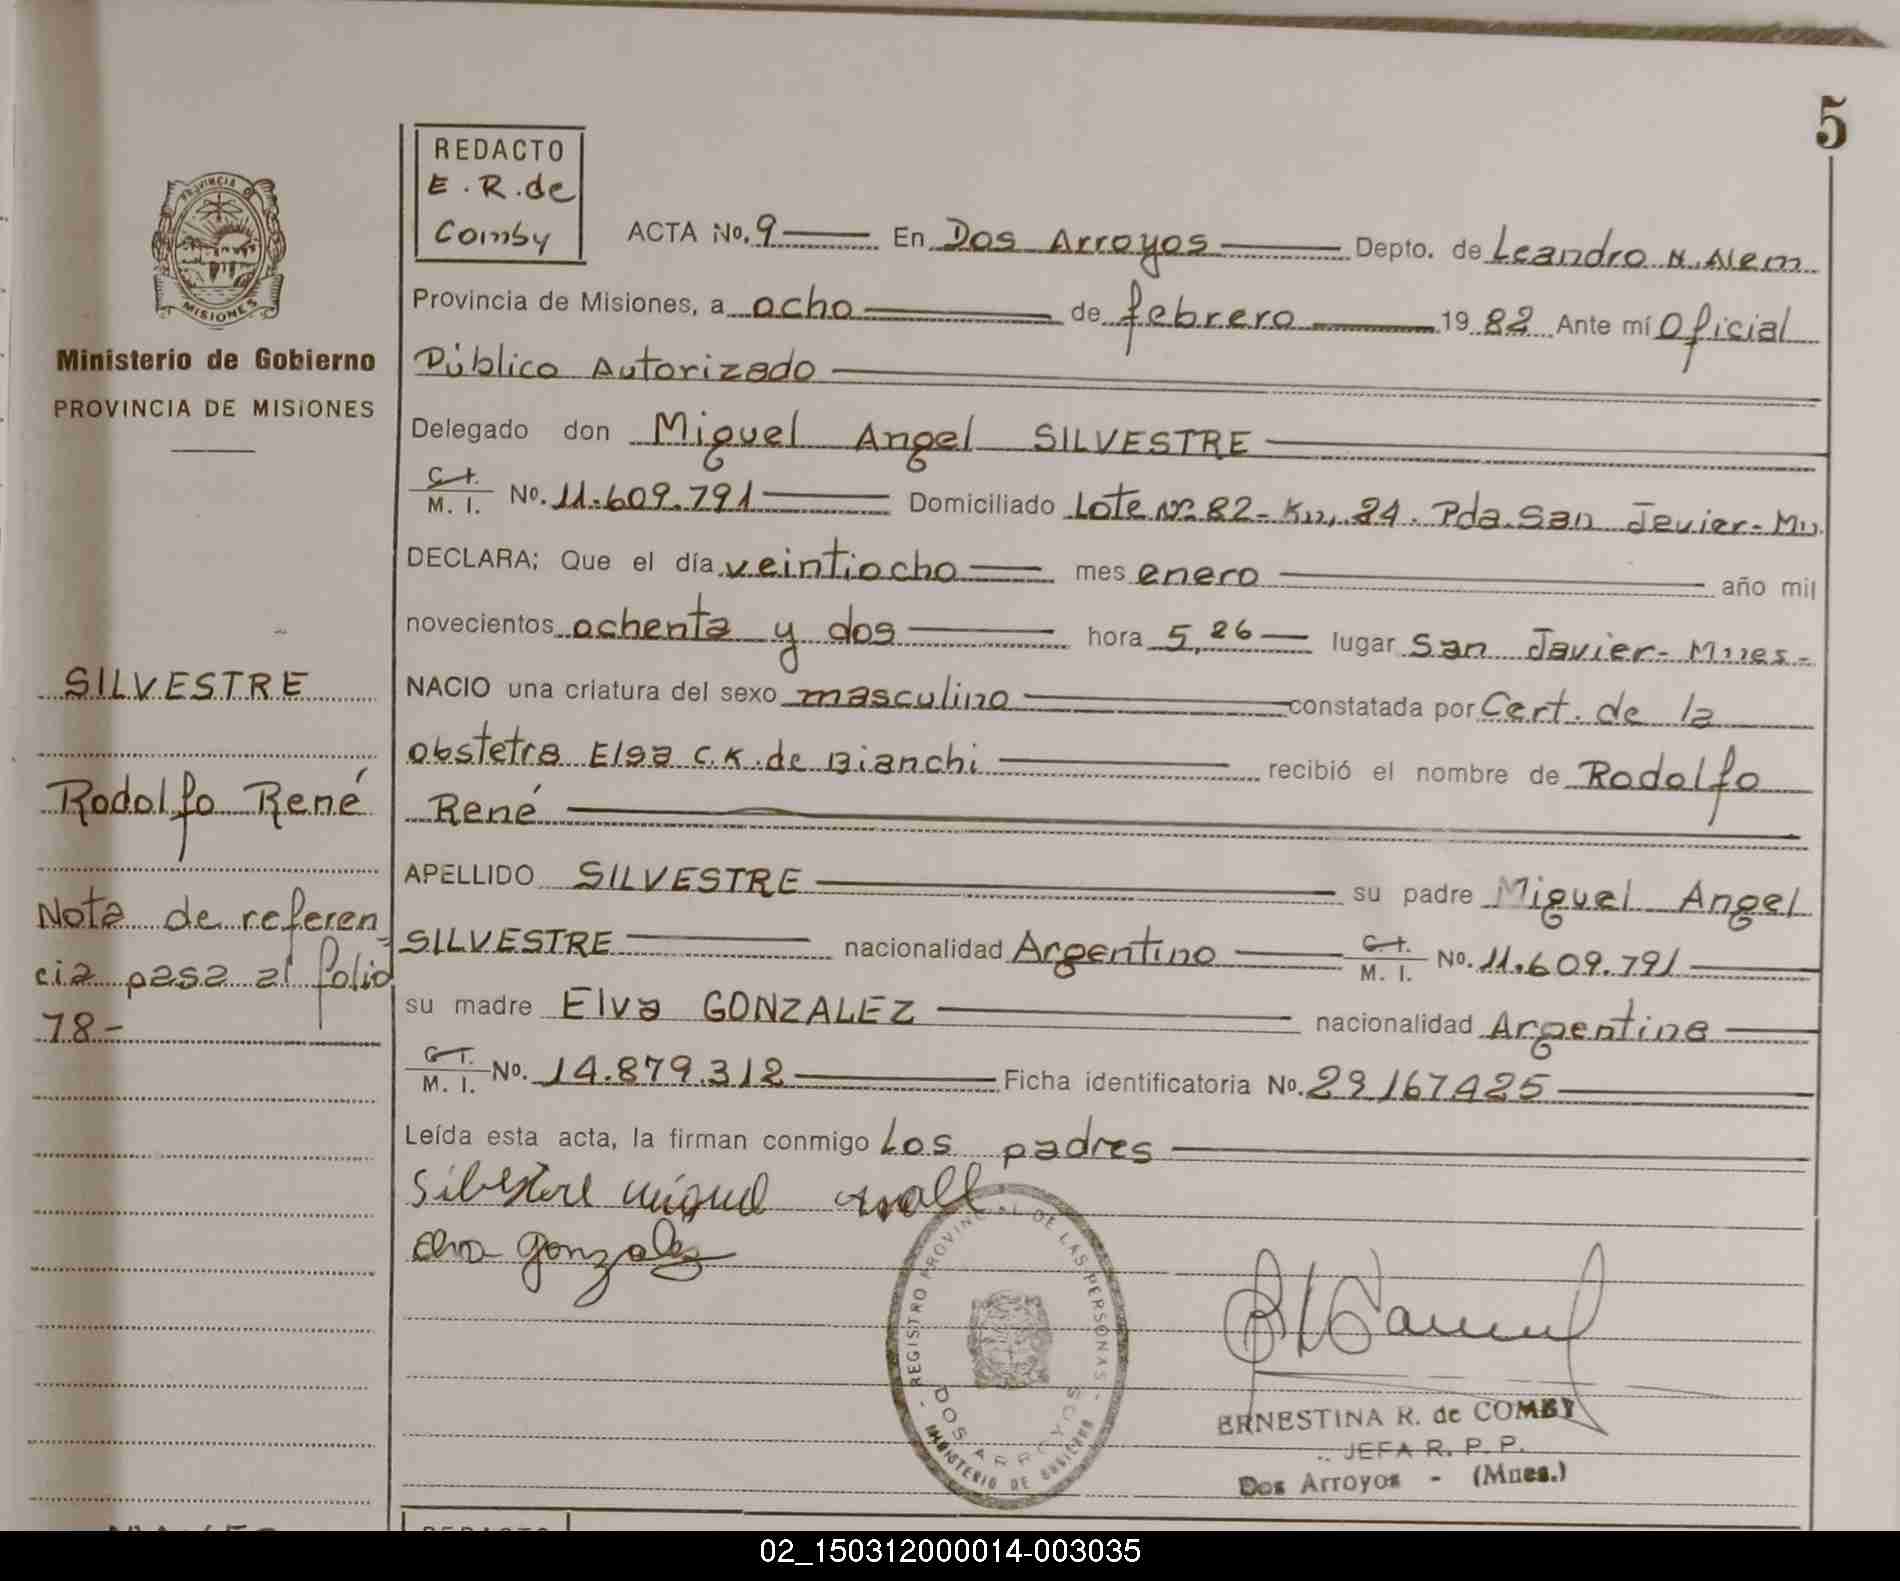 5
REDACTO
E. R. de
Comby
ACTA No. 9 En Dos Arroyos Depto. de Leandro N. Alem
Provincia de Misiones, a ocho de febrero 1982 Ante mí Oficial
Público Autorizado
Delegado don Miguel Angel SILVESTRE
C. I.
M. I. No. 11.609.791 Domiciliado Lote Nº 82- Km, 24. Pda. San Javier- Mns.
DECLARA; Que el día veintiocho mes enero año mil
novecientos ochenta y dos hora 5,26 lugar San Javier- Mnes-
NACIO una criatura del sexo masculino constatada por Cert. de la
obstetra Elsa C.K. de Bianchi recibió el nombre de Rodolfo
René
APELLIDO SILVESTRE su padre Miguel Angel
SILVESTRE nacionalidad Argentino C. I.
M. I. No. 11.609.791
su madre Elva GONZALEZ nacionalidad Argentina
C. I.
M. I. No. 14.879.312 Ficha identificatoria No. 29167425
Leída esta acta, la firman conmigo Los padres
Silbestre miguel
elva gonzalez
REGISTRO PROVINCIAL DE LAS PERSONAS
DOS ARROYOS
MINISTERIO DE GOBIERNO
ERNESTINA R. de COMBY
JEFA R. P. P.
Dos Arroyos - (Mnes.)
PROVINCIA DE
MISIONES
Ministerio de Gobierno
PROVINCIA DE MISIONES
SILVESTRE
Rodolfo René
Nota de referen
cia pasa al folio
78-
REDACTO
02_150312000014-003035